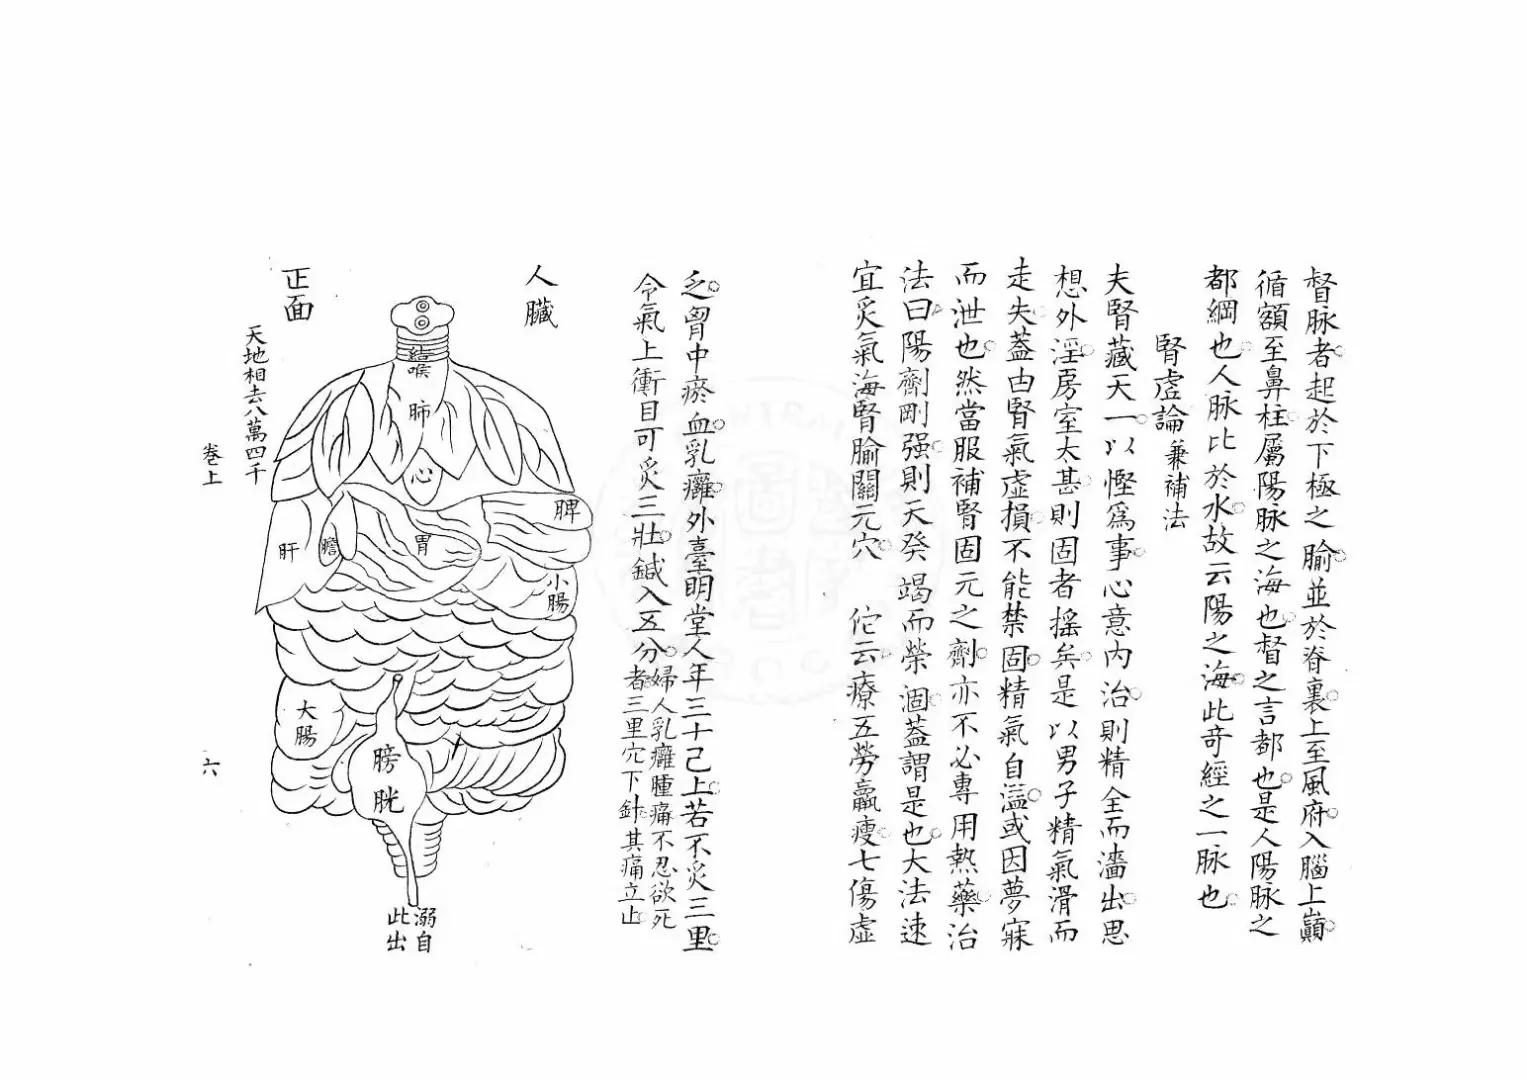 督脉者起於下極之腧並於脊裏上至風府入腦上巔
循額至鼻柱屬陽脉之海也督之言都也是人陽脉之
都綱也人脉比於水故云陽之海此奇經之一脉也
腎虛論兼補法
夫腎藏天一以慳爲事心意內治則精全而濇出思
想外淫房室太甚則固者搖矣是以男子精氣滑而
走失蓋由腎氣虛損不能禁固精氣自溢或因夢寐
而泄也然當服補腎固元之劑亦不必專用熱藥治
法曰陽劑剛强則天癸竭而榮涸蓋謂是也大法速
宜炙氣海腎腧關元穴 佗云療五勞羸瘦七傷虛
乏胷中瘀血乳癰外臺明堂人年三十已上若不炙三里
令氣上衝目可炙三壯鍼入五分婦人乳癰腫痛不忍欲死
者三里穴下針其痛立止
人臟
正面
結喉
肺
心
脾
肝
膽
胃
小腸
大腸
膀胱
溺自
此出
天地相去八萬四千
卷上
六